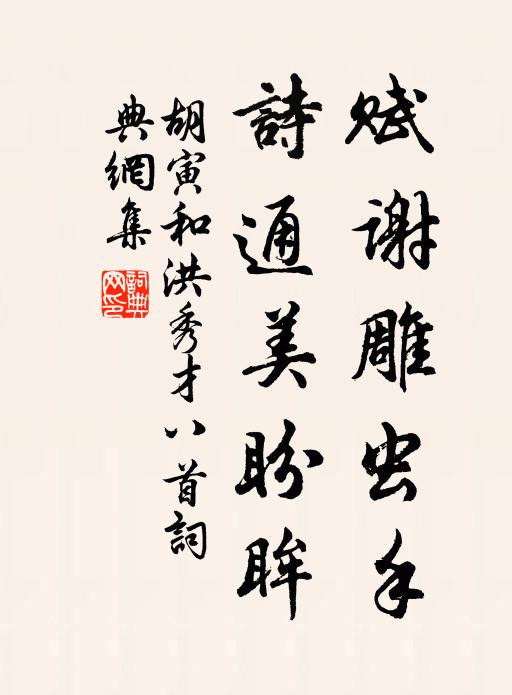 赋谢雕虫手
詩通美盼眸
胡寅和洪秀才八首詞
典網集
詞典网印